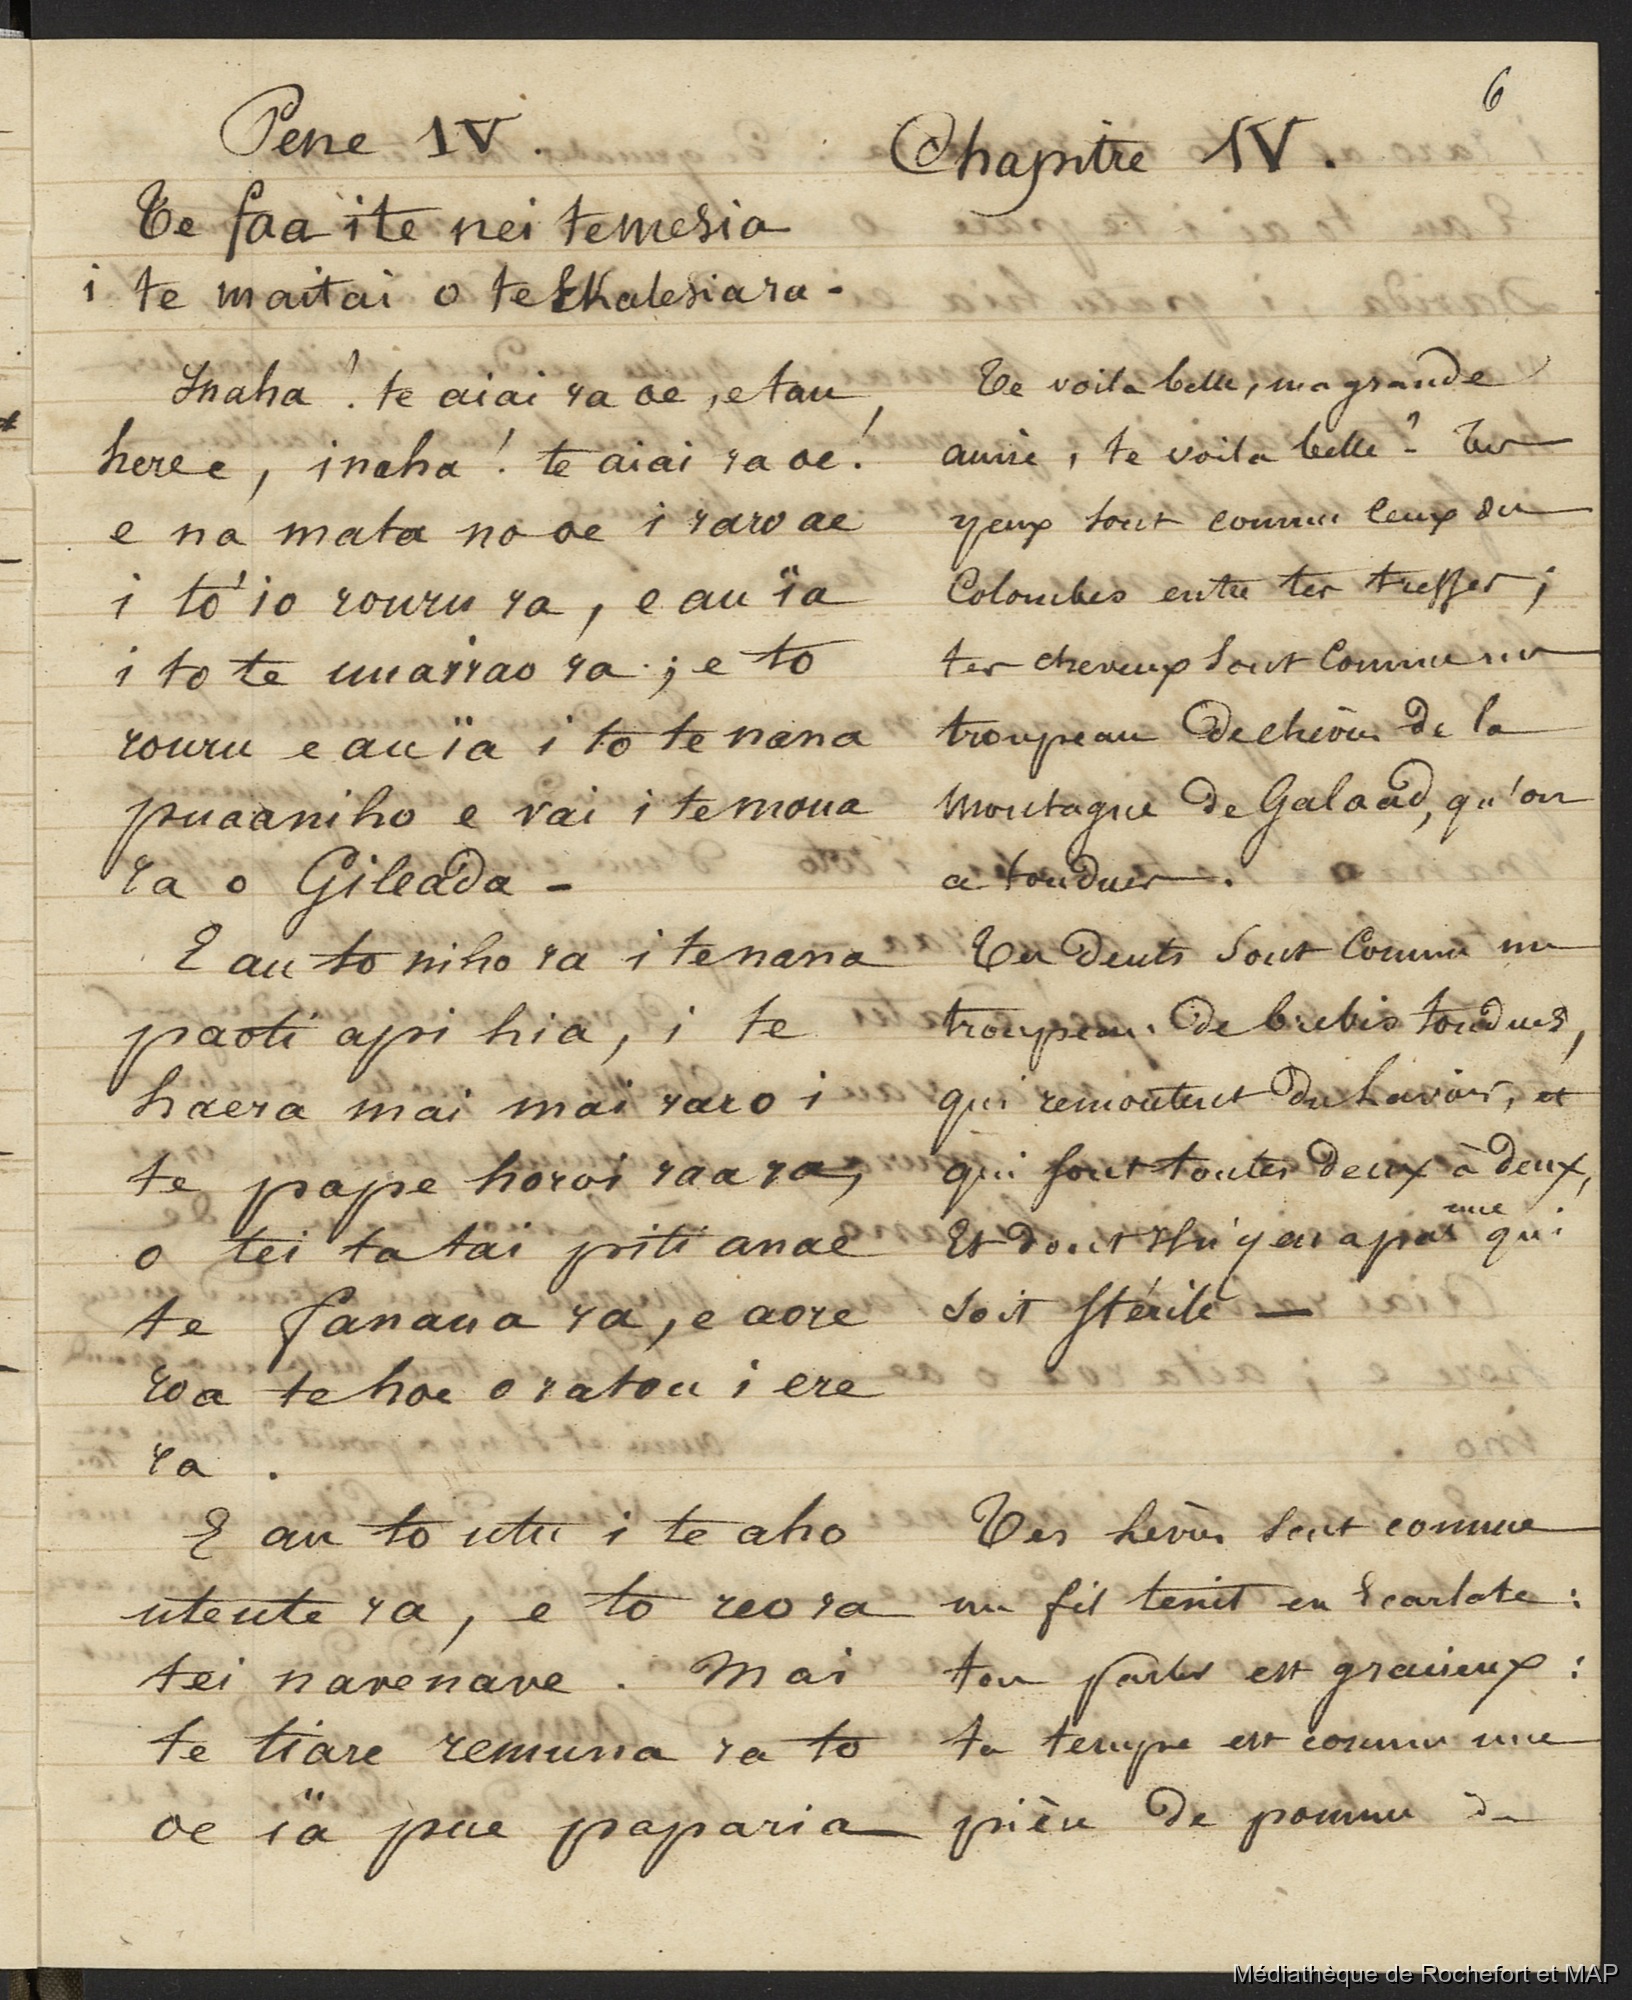 6
Pene IV.
Te faa ite nei temesia
i te maitai o te Ekalesia ra -
Inaha! te aiai ra oe, e tau
here e, inaha! te aiai ra oe!
e na mata no oe i raro ae
i to'io rouru ra, e au ïa
i to te uuairao ra ; e to
rouru e au ïa i to te nana
puaaniho e vai i te moua
ra o Gileada -
E au to niho ra i te nana
paoti api hia, i te
haera mai mai raro i
te pape horoi raa ra,
o tei ta tai piti anae
te fanaua ra, e aore
roa te hoe o ratou i ere
ra .
E au to utu i te aho
uteute ra, e to reo ra
tei navenave . Mai
te tiare remuna ra to
oe ïa pue paparia
Chapitre IV.
Te voila belle, ma grande
amie, te voila belle! Tes
yeux sont comme ceux des
Colombes entre tes tresses ;
tes cheveux sont comme un
troupeau de chèvres de la
montagne de Galaad, qu'on
a tondues.
Tes dents sont comme un
troupeau de brebis tondues,
qui remontent du lavoir, et
qui sont toutes deux à deux,
Et dont il n'y en a pas une qui
soit stérile —
Tes lèvres sont comme
un fil teint en Ecarlate :
ton parler est gracieux :
ta tempe est comme une
pièce de pomme de
Médiathèque de Rochefort et MAP